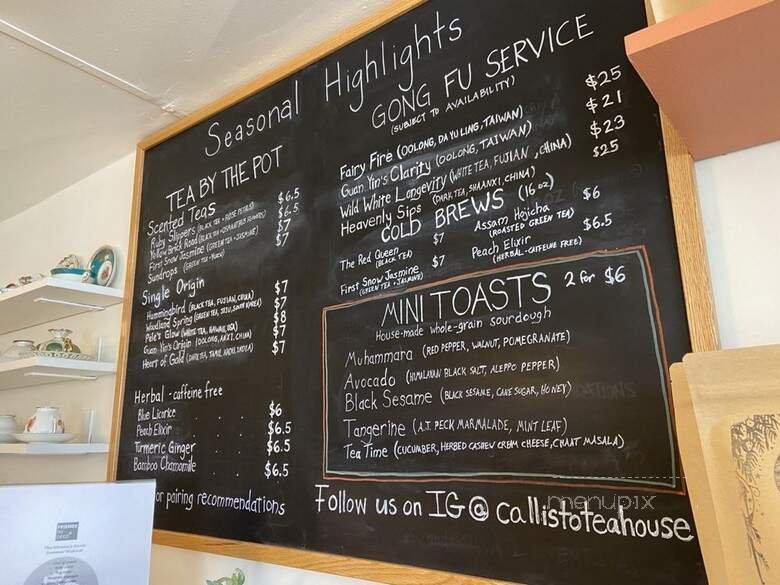 Seasonal Highlights
TEA BY THE POT
Scented Teas
Ruby Slippers (BLACK TEA + ROSE PETALS) $6.5
Yellow Brick Road (BLACK TEA + OSMANTHUS FLOWERS) $6.5
First Snow Jasmine (GREEN TEA + JASMINE) $7
Sundrops (GREEN TEA + YUZU) $7
Single Origin
Hummingbird (BLACK TEA, FUJIAN, CHINA) $7
Woodland Spring (GREEN TEA, JEJU, SOUTH KOREA) $7
Pele's Glow (WHITE TEA, HAWAII, USA) $8
Guan Yin's Origin (OOLONG, ANXI, CHINA) $7
Heart of Gold (DARK TEA, TAMIL NADU, INDIA) $7
Herbal - caffeine free
Blue Licorice $6
Peach Elixir $6.5
Turmeric Ginger $6.5
Bamboo Chamomile $6.5
or pairing recommendations
GONG FU SERVICE
(SUBJECT TO AVAILABILITY)
Fairy Fire (OOLONG, DA YU LING, TAIWAN) $25
Guan Yin's Clarity (OOLONG, TAIWAN) $21
Wild White Longevity (WHITE TEA, FUJIAN, CHINA) $23
Heavenly Sips (DARK TEA, SHAANXI, CHINA) $25
COLD BREWS (16 oz)
The Red Queen $7
(BLACK TEA)
First Snow Jasmine $7
(GREEN TEA + JASMINE)
Assam Hojicha $6
(ROASTED GREEN TEA)
Peach Elixir $6.5
(HERBAL-CAFFEINE FREE)
MINI TOASTS 2 for $6
House-made whole-grain sourdough
Muhammara (RED PEPPER, WALNUT, POMEGRANATE)
Avocado (HIMALAYAN BLACK SALT, ALEPPO PEPPER)
Black Sesame (BLACK SESAME, CANE SUGAR, HONEY)
Tangerine (A.J. PECK MARMALADE, MINT LEAF)
Tea Time (CUCUMBER, HERBED CASHEW CREAM CHEESE, CHAAT MASALA)
Follow us on IG @ callistoteahouse
menupix